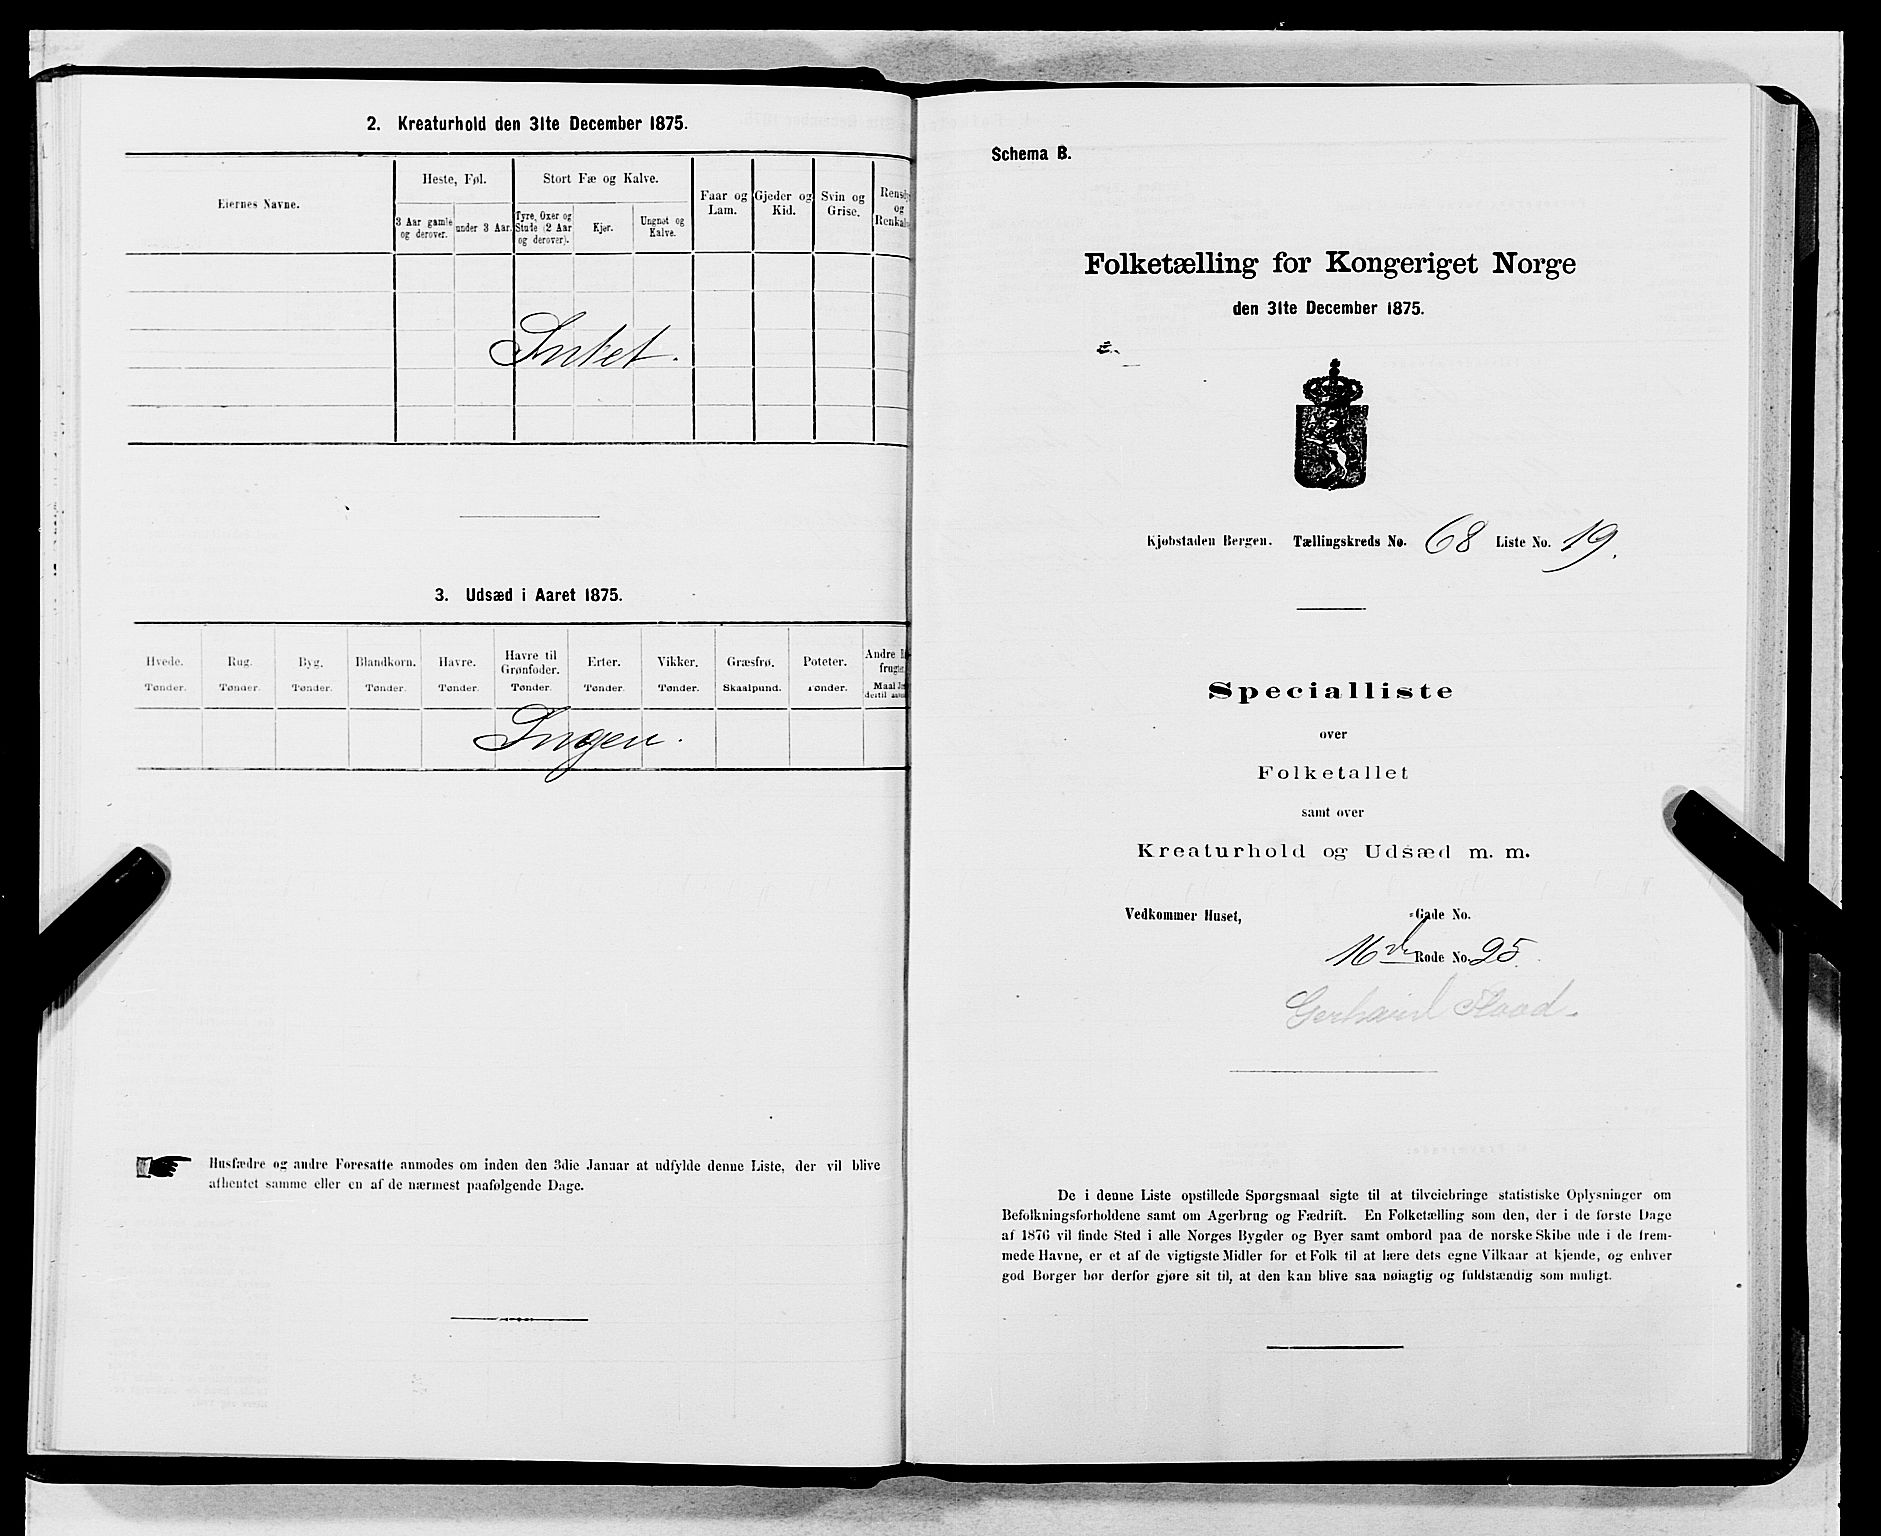 2. Kreaturhold den 31te December 1875.
Eiernes Navne.
Heste, Føl.
Stort Fæ og Kalve.
Faar og Lam.
Gjeder og Kid.
Svin og Grise.
3 Aar gamle og derover.
under 3 Aar.
Tyre, Oxer og Stute (2 Aar og derover).
Kjør.
Ungnøt og Kalve.
Intet.
3. Udsæd i Aaret 1875.
Hvede. Rug. Byg. Blandkorn. Havre. Havre til Grønfoder. Erter. Vikker. Græsfrø. Poteter. Andre
Tønder. Tønder. Tønder. Tønder. Tønder. Tønder. Tønder. Tønder. Skaalpund. Tønder. Maal
Ingen.
Husfædre og andre Foresatte anmodes om inden den 3die Januar at udfylde denne Liste, der vil blive
afhentet samme eller en af de nærmest paafølgende Dage.
Schema B.
Folketælling for Kongeriget Norge
den 31te December 1875.
Kjøbstaden Bergen. Tællingskreds No. 68 Liste No. 19.
Specialliste
over
Folketallet
samt over
Kreaturhold og Udsæd m. m.
Vedkommer Huset, Gade No.
16de Rode No. 25.
Gerhard
De i denne Liste opstillede Spørgsmaal sigte til at tilveiebringe statistiske Oplysninger om
Befolkningsforholdene samt om Agerbrug og Fædrift. En Folketælling som den, der i de første Dage
af 1876 vil finde Sted i alle Norges Bygder og Byer samt ombord paa de norske Skibe ude i de frem-
mede Havne, er et af de vigtigste Midler for et Folk til at lære dets egne Vilkaar at kjende, og enhver
god Borger bør derfor gjøre sit til, at den kan blive saa nøiagtig og fuldstændig som muligt.